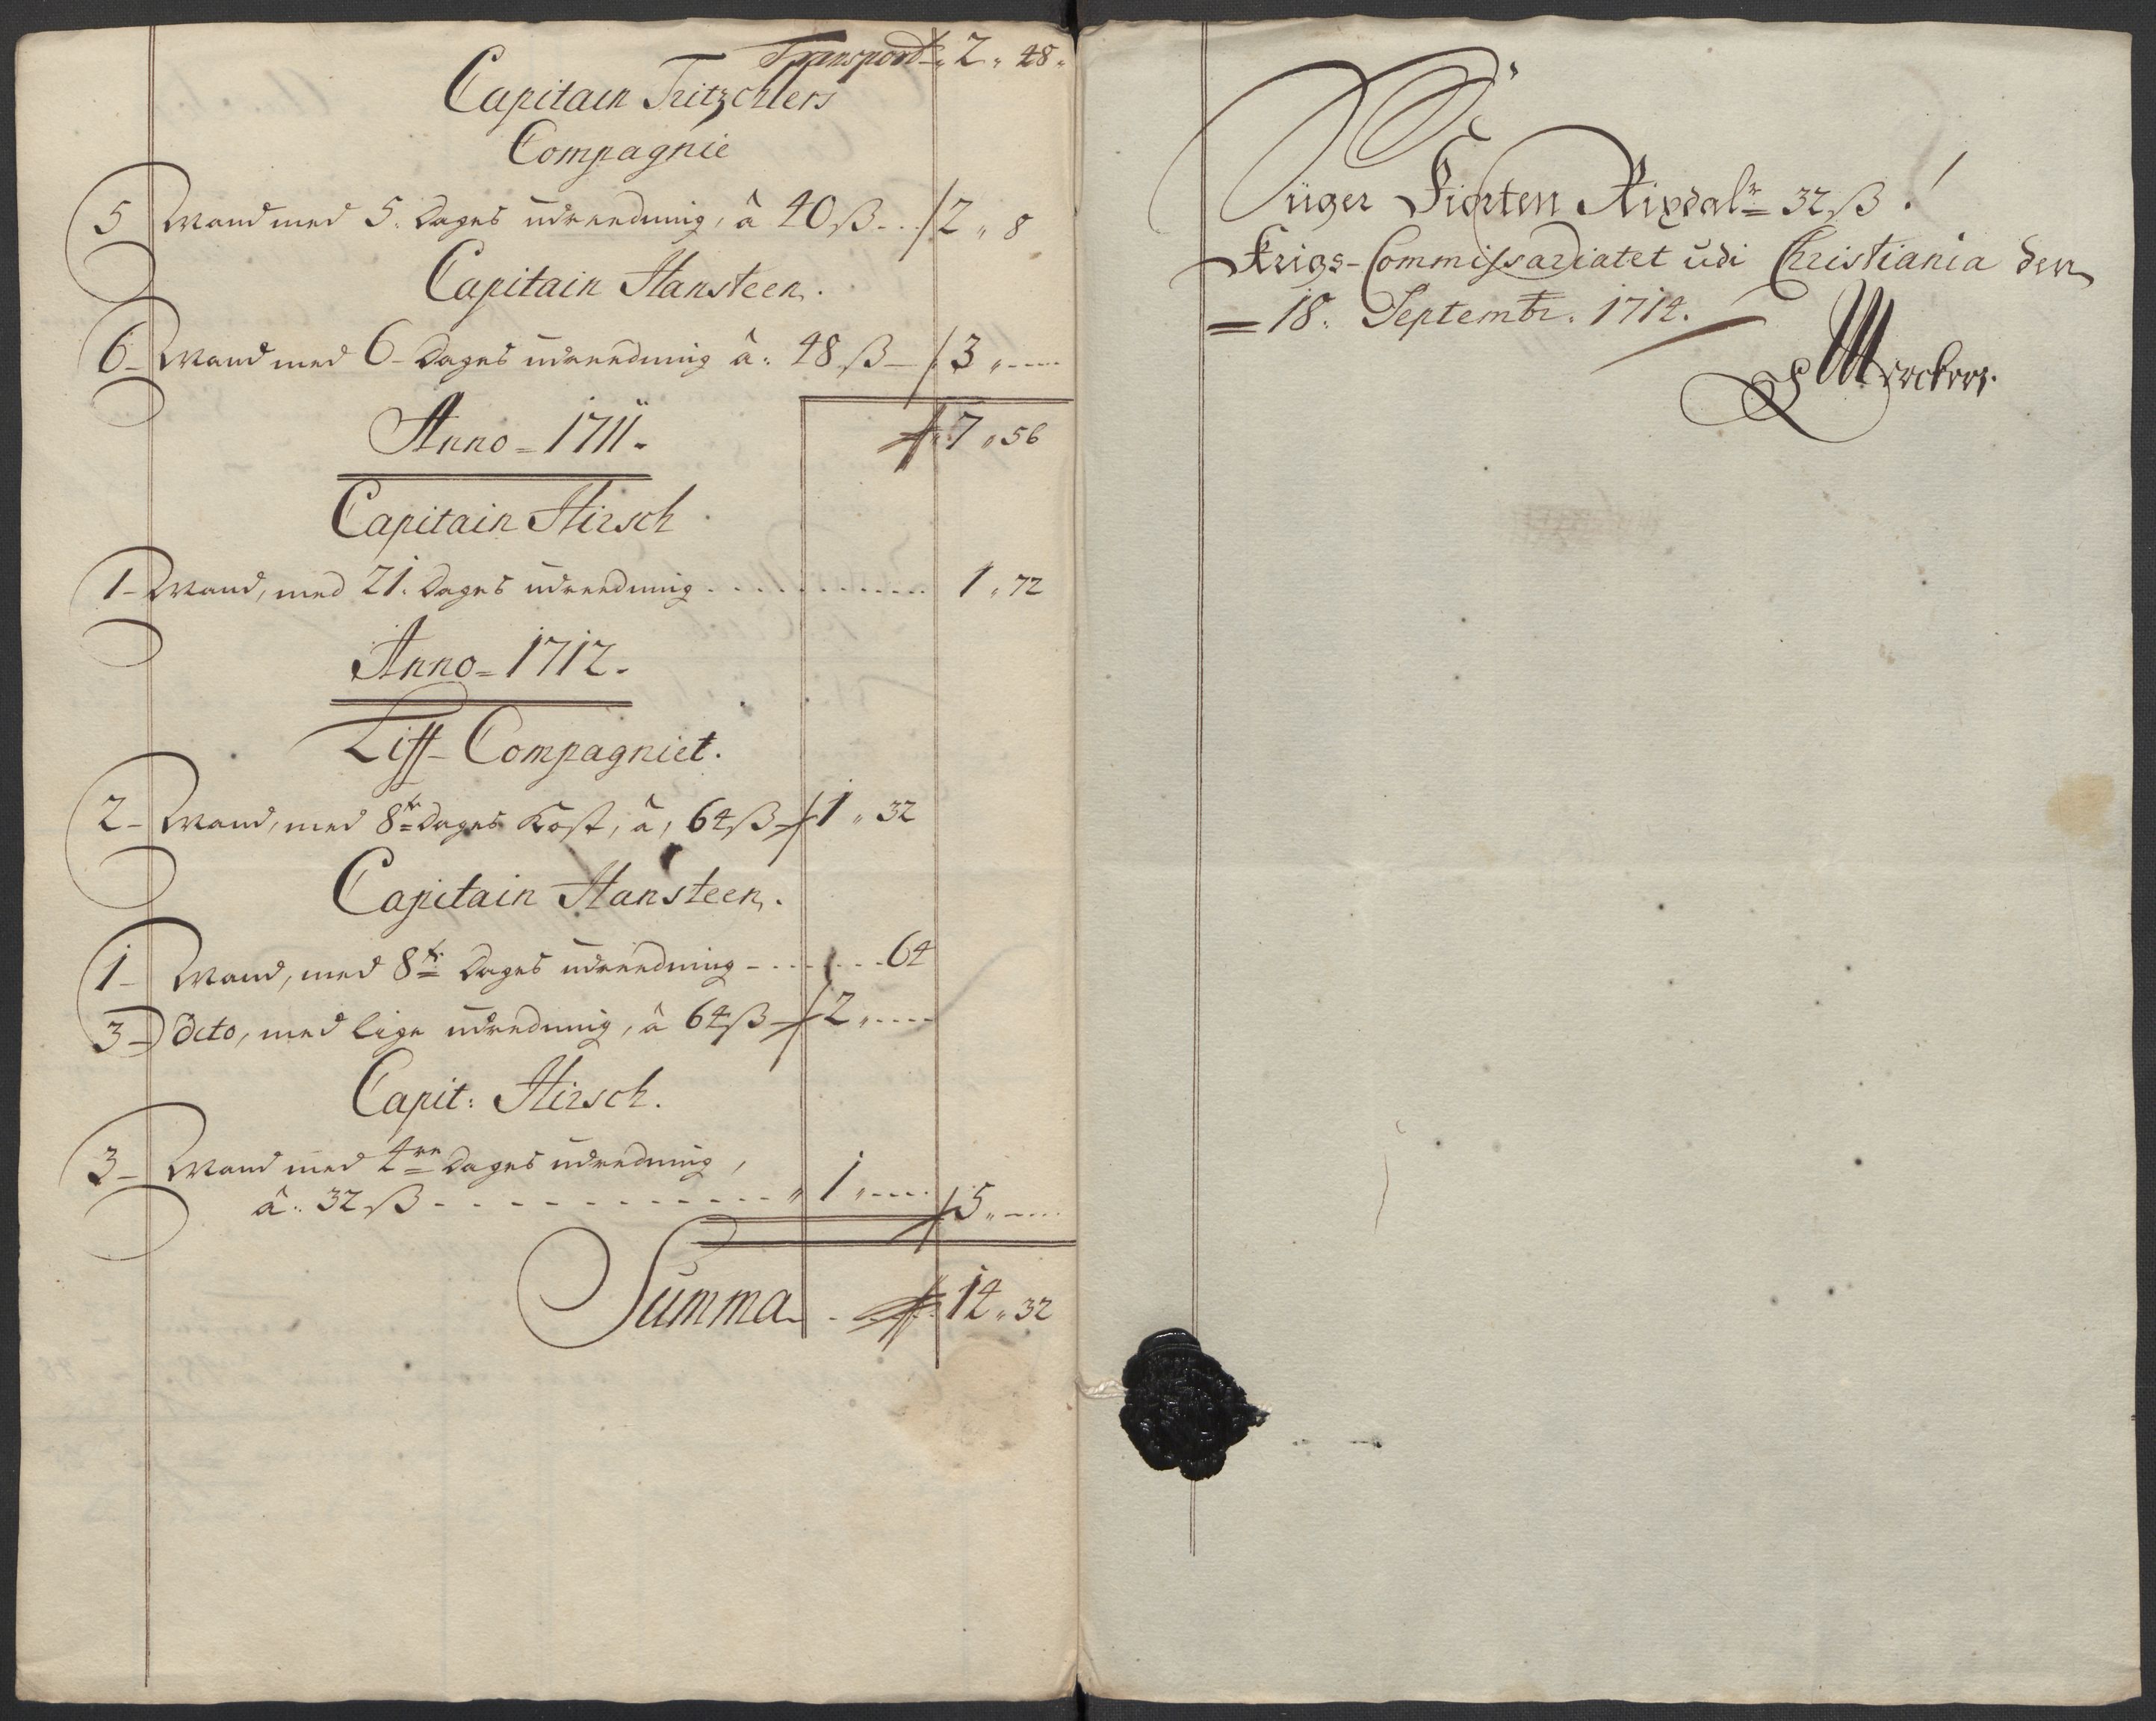 Transport „ 2 „ 48 „
Capitain Fritzchlers
Compagnie
5 Mand med 5. Dages udreedning, â 40 ß - - - 2 „ 8
Capitain Hansteen.
6 - Mand med 6 - Dages udreedning â: 48 ß - 3 „ - - - -
Anno = 1711 - 7 „ 56
Capitain Hirsch
1 - Mand, med 21. Dages udreedning - - - - - - - - - - 1 „ 72
Anno = 1712 -
Liff - Compagniet.
2 - Mand, med 8te Dages Kost, â, 64 ß 1 „ 32
Capitain Hansteen.
1 - Mand, med 8te Dages udreedning - - - - - - 64
3 - Dito, med lige udredning, â 64 ß 2 „ - - - -
Capit: Hirsch.
3 - Mand med 4re Dages udredning,
â: 32 ß - - - - - - - - - - - - „ 1 „ - - - - 5 „ - - - -
Summa - 14 „ 32
Siger Fiorten Rixdalr 32 ß!
Krigs-Commissariatet udi Christiania den
= 18. Septembr. 1714.